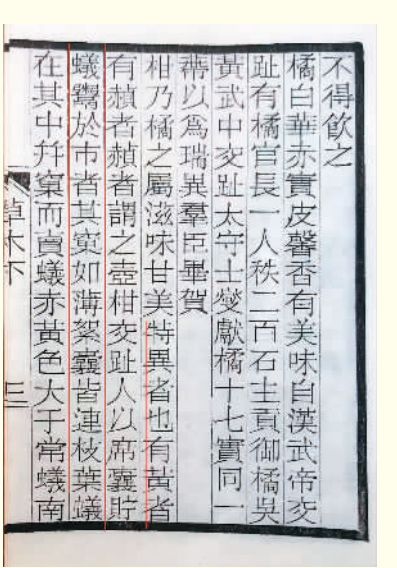 不得飲之
橘白華赤實皮馨香有美味自漢武帝交
趾有橘官長一人秩二百石主貢御橘吳
黃武中交趾太守士燮獻橘十七實同一
蔕以爲瑞異羣臣畢賀
柑乃橘之屬滋味甘美特異者也有黃者
有赬者赬者謂之壺柑交趾人以席囊貯
蟻鬻於市者其窠如薄絮囊皆連枝葉蟻
在其中幷窠而賣蟻赤黃色大于常蟻南
草木下
三